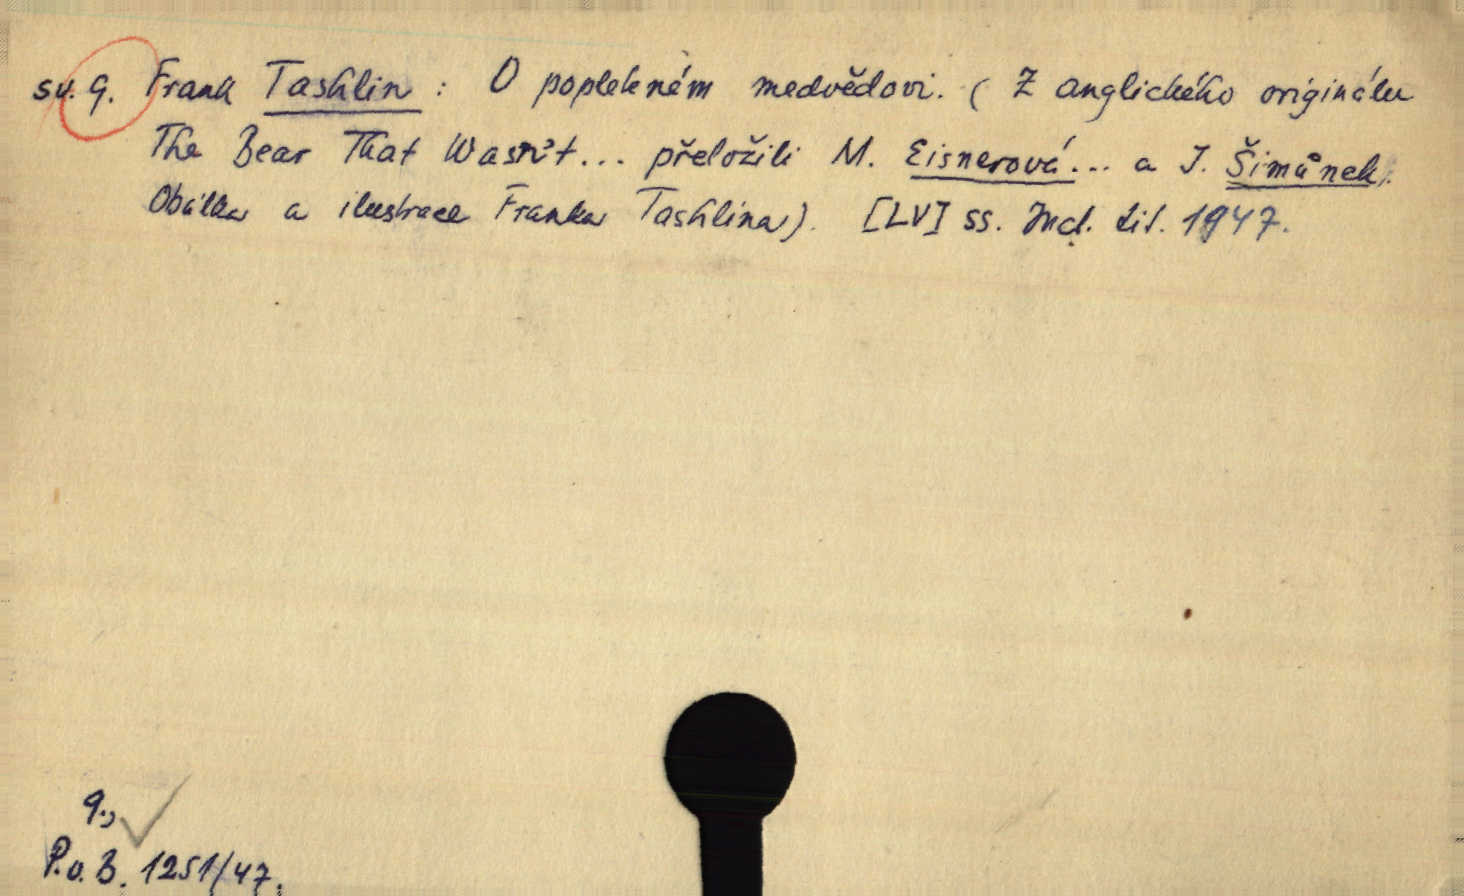 sv. 9. Frank Tashlin : O popleteném medvědovi. ( Z anglického originálu
The Bear That Wasn't... přeložili M. Eisnerová... a J. Šimůnek.
Obálka a ilustrace Franka Tashlina). [LV] ss. Incl. tit. 1947.
9.,
P.o.B. 1251/47.